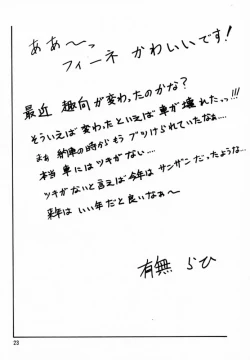 ああ〜っ
フィーネ かわいいです!
最近 趣向が変わったのかな?
そういえば変わったといえば車が壊れたっ!!!
まぁ 納車の時からもうブツけられていたなぁ....
本当 車にはツキがない....
ツキがないと言えば今年はサンザンだったような...
来年は いい年だと良いなぁ〜
有無 らひ
23